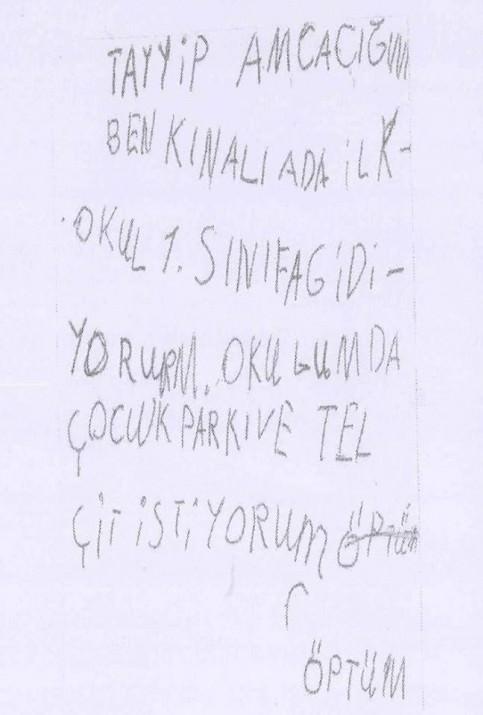 TAYYİP AMCACIĞIM
BEN KINALIADA İLK-
OKUL 1. SINIFA GİDİ-
YORUM. OKULUMDA
ÇOCUK PARKI VE TEL
ÇİT İSTİYORUM ÖPTÜM
ÖPTÜM